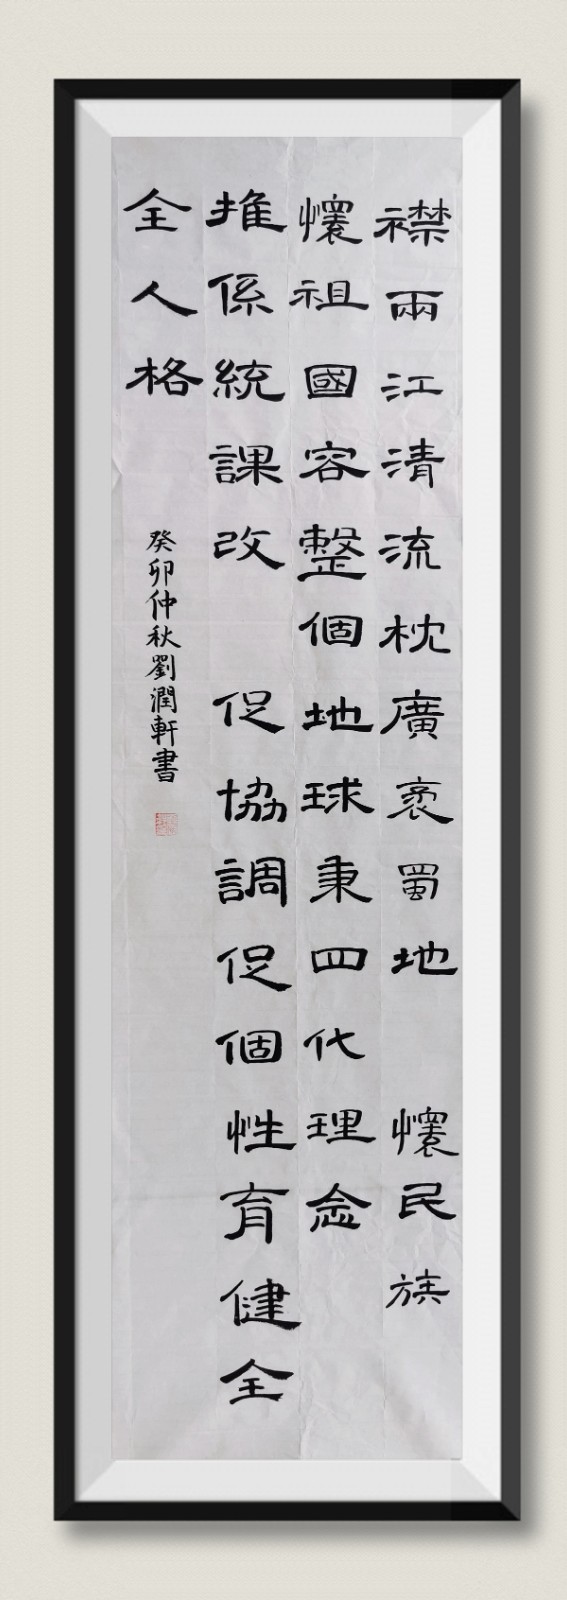 襟兩江清流枕廣袤蜀地　懷民族
懷祖國容整個地球秉四代理念
推係統課改　促協調促個性育健全
全人格
癸卯仲秋劉潤軒書